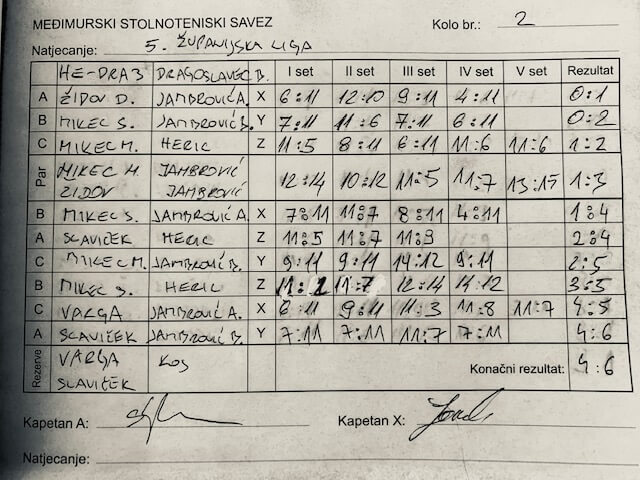 MEĐIMURSKI STOLNOTENISKI SAVEZ Kolo br.: 2
Natjecanje: 5. ŽUPANIJSKA LIGA
HE-DRA3 DRAGOSLAVEC B. I set II set III set IV set V set Rezultat
A ŽIDOV D. JAMBROVIĆ A. X 6:11 12:10 9:11 4:11 0:1
B MIKEC S. JAMBROVIĆ B. Y 7:11 11:6 7:11 6:11 0:2
C MIKEC M. HERIC Z 11:5 8:11 6:11 11:6 11:6 1:2
Par MIKEC M. JAMBROVIĆ
ZIDOV JAMBROVIĆ 12:14 10:12 11:5 11:7 13:15 1:3
B MIKEC S. JAMBROVIĆ A. X 7:11 11:7 8:11 4:11 1:4
A SLAVIČEK HERIC Z 11:5 11:7 11:9 2:4
C MIKEC M. JAMBROVIĆ B. Y 9:11 9:11 14:12 9:11 2:5
B MIKEC S. HERIC Z 11:2 11:7 12:14 14:12 3:5
C VARGA JAMBROVIĆ A. X 8:11 9:11 11:3 11:8 11:7 4:5
A SLAVIČEK JAMBROVIĆ B. Y 7:11 7:11 11:7 7:11 4:6
Rezerve VARGA KOS Konačni rezultat: 4:6
SLAVIČEK
Kapetan A: Kapetan X:
Natjecanje: